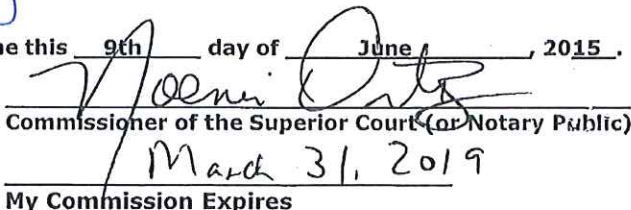 ne this 9th day of June, 2015.
Noemi Ortiz
Commissioner of the Superior Court (or Notary Public)
March 31, 2019
My Commission Expires